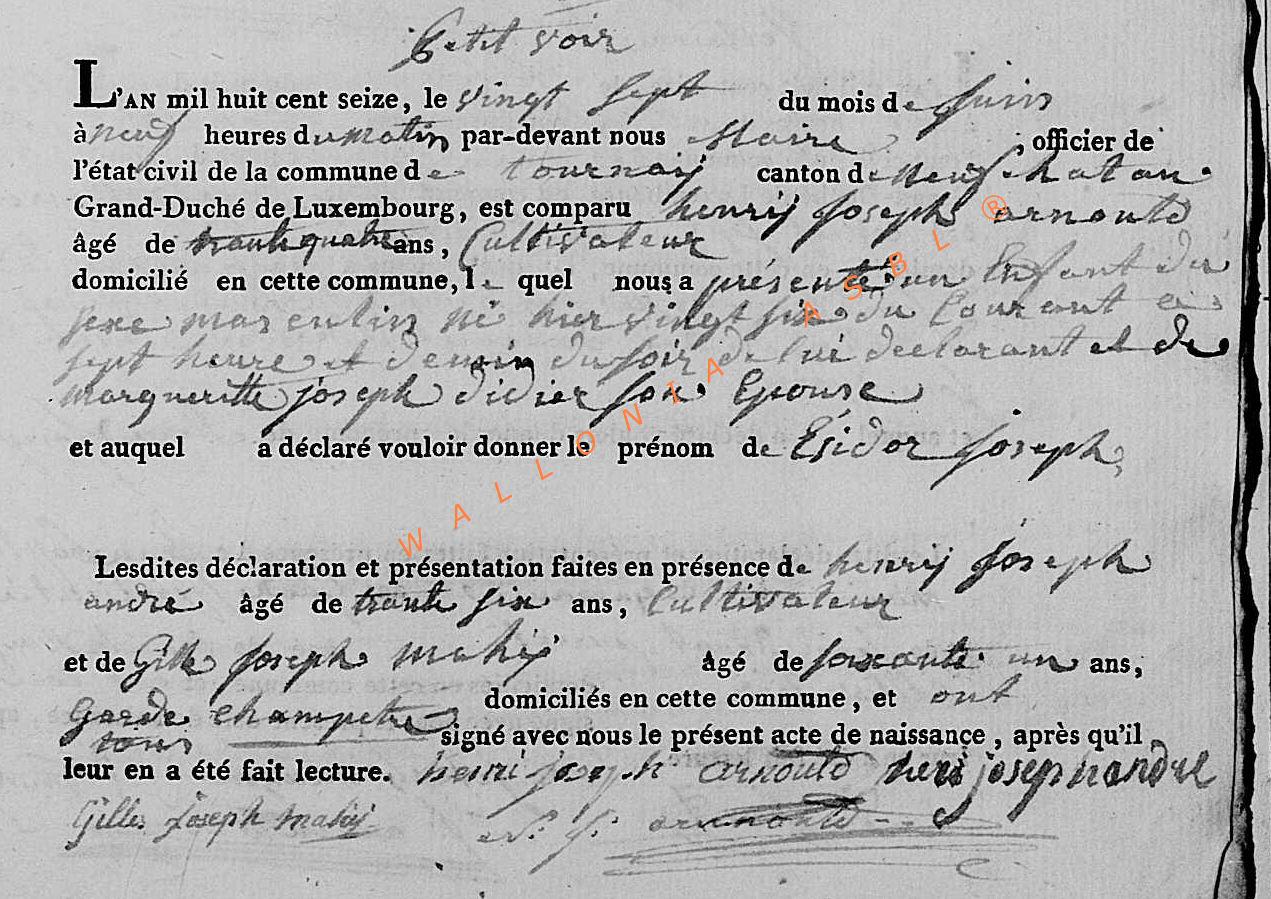 Petit voir
L'AN mil huit cent seize, le vingt sept du mois de juin
à neuf heures du matin par-devant nous Maire, officier de
l'état civil de la commune de tournay canton de neufchatau
Grand-Duché de Luxembourg, est comparu henry joseph arnould
âgé de trante quatre ans, Cultivateur
domicilié en cette commune, le quel nous a présenté un Enfant du
sexe masculin né hier vingt six du Courant a
sept heure et demin du soir de lui declarant et de
margueritte joseph didier son Epouse
et auquel a déclaré vouloir donner le prénom de Esidor joseph,
Lesdites déclaration et présentation faites en présence de henry joseph
andré âgé de trante six ans, Cultivateur
et de Gille joseph mahy âgé de soixante un ans,
Garde champetre domiciliés en cette commune, et ont
tous signé avec nous le présent acte de naissance, après qu'il
leur en a été fait lecture. henri joseph arnould heri joseph andre
Gilles joseph mahy arnould
WALLONIA ASBL ®